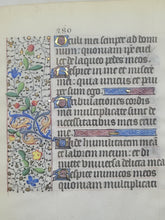 280
culi mei semper ad domi
num quoniam ipse euellet
de laqueo pedes meos.
Respice in me et miserere
mei quia unicus et pau
per sum ego.
Tribulationes cordis
mei multiplicate sunt
de necessitatibus meis erue
me
Vide humilitatem meam
et laborem meum et
Respice inimicos meos
quoniam multiplicati